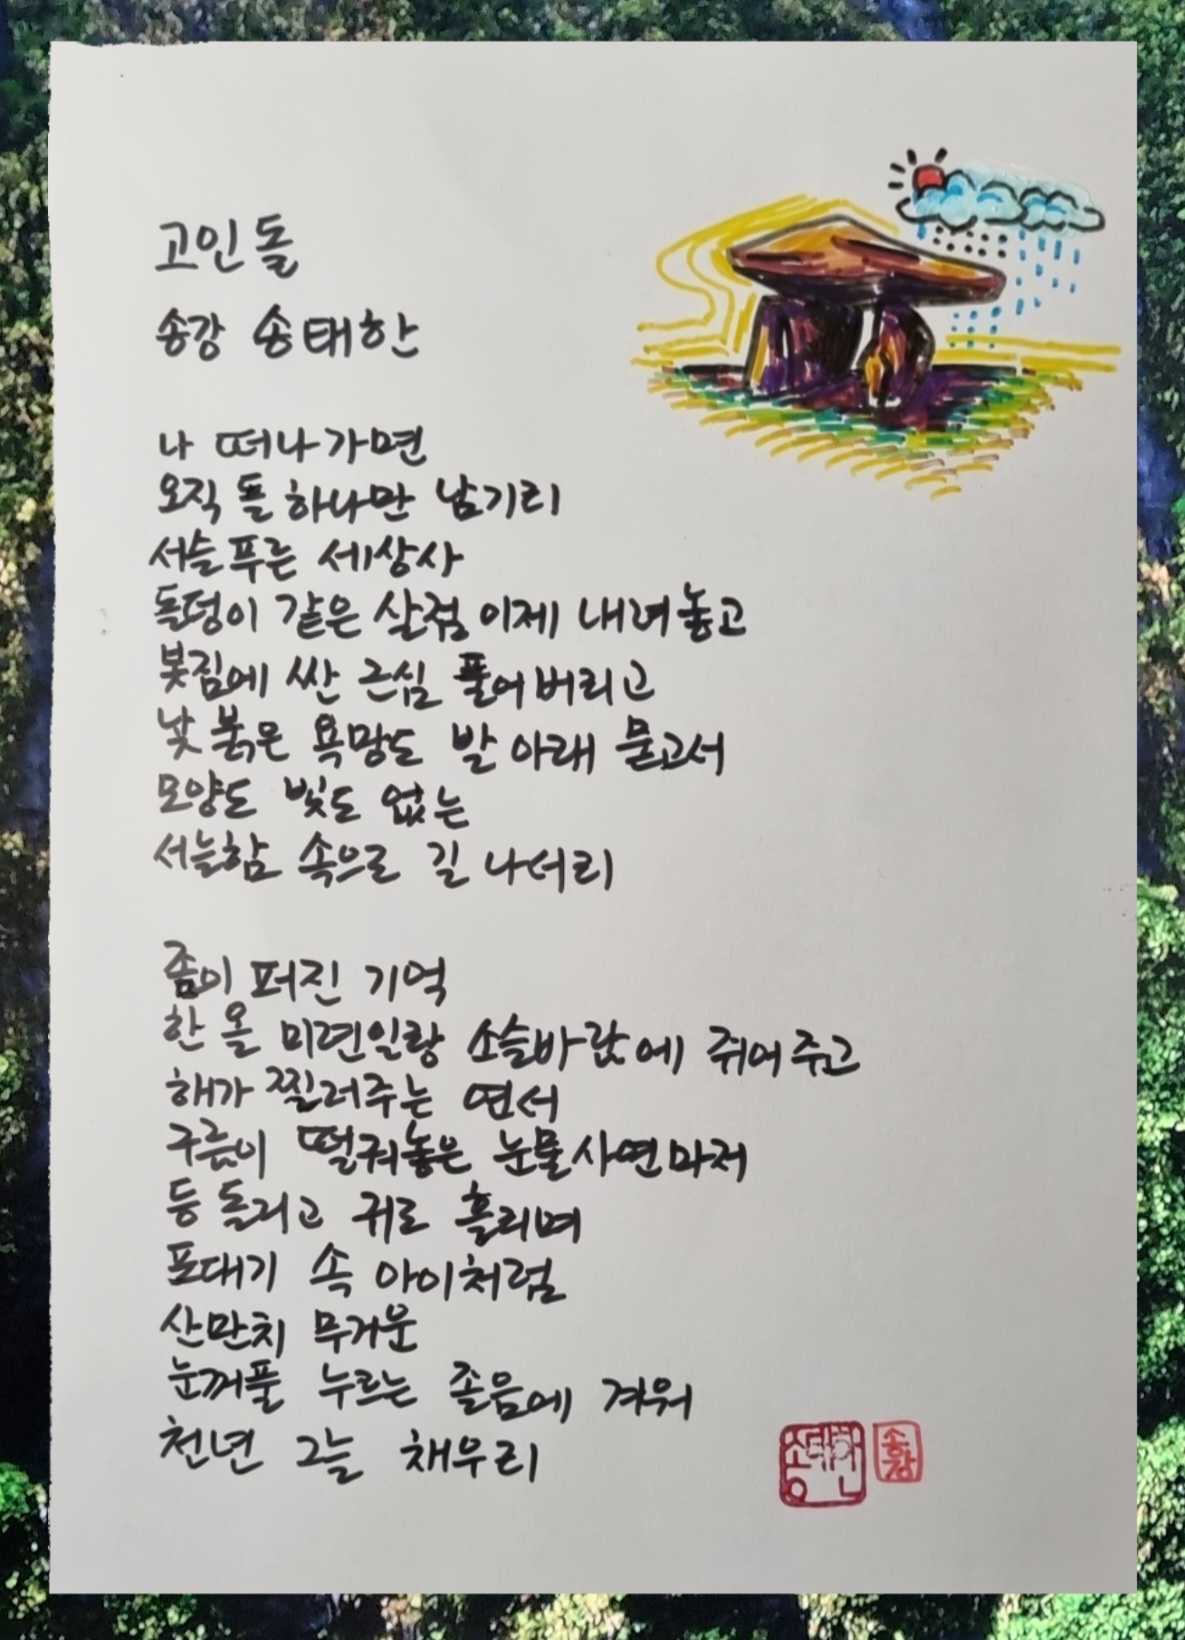 고인돌
송강 송태한
나 떠나가면
오직 돌 하나만 남기리
서슬 푸른 세상사
돌덩이 같은 살점 이제 내려놓고
봇짐에 싼 근심 풀어버리고
낯 붉은 욕망도 발 아래 묻고서
모양도 빛도 없는
서늘함 속으로 길 나서리
좀이 퍼진 기억
한 올 미련일랑 소슬바람에 쥐어주고
해가 찔러주는 연서
구름이 떨궈놓은 눈물사연마저
등 돌리고 귀로 흘리며
포대기 속 아이처럼
산만치 무거운
눈꺼풀 누르는 졸음에 겨워
천년 그늘 채우리
송태한
송강